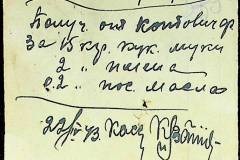 Получ. от Контовичар
За 15 кгр. кук. муки
2 " пшена
0.2 " пос. масла
22/IV 43. Касс.